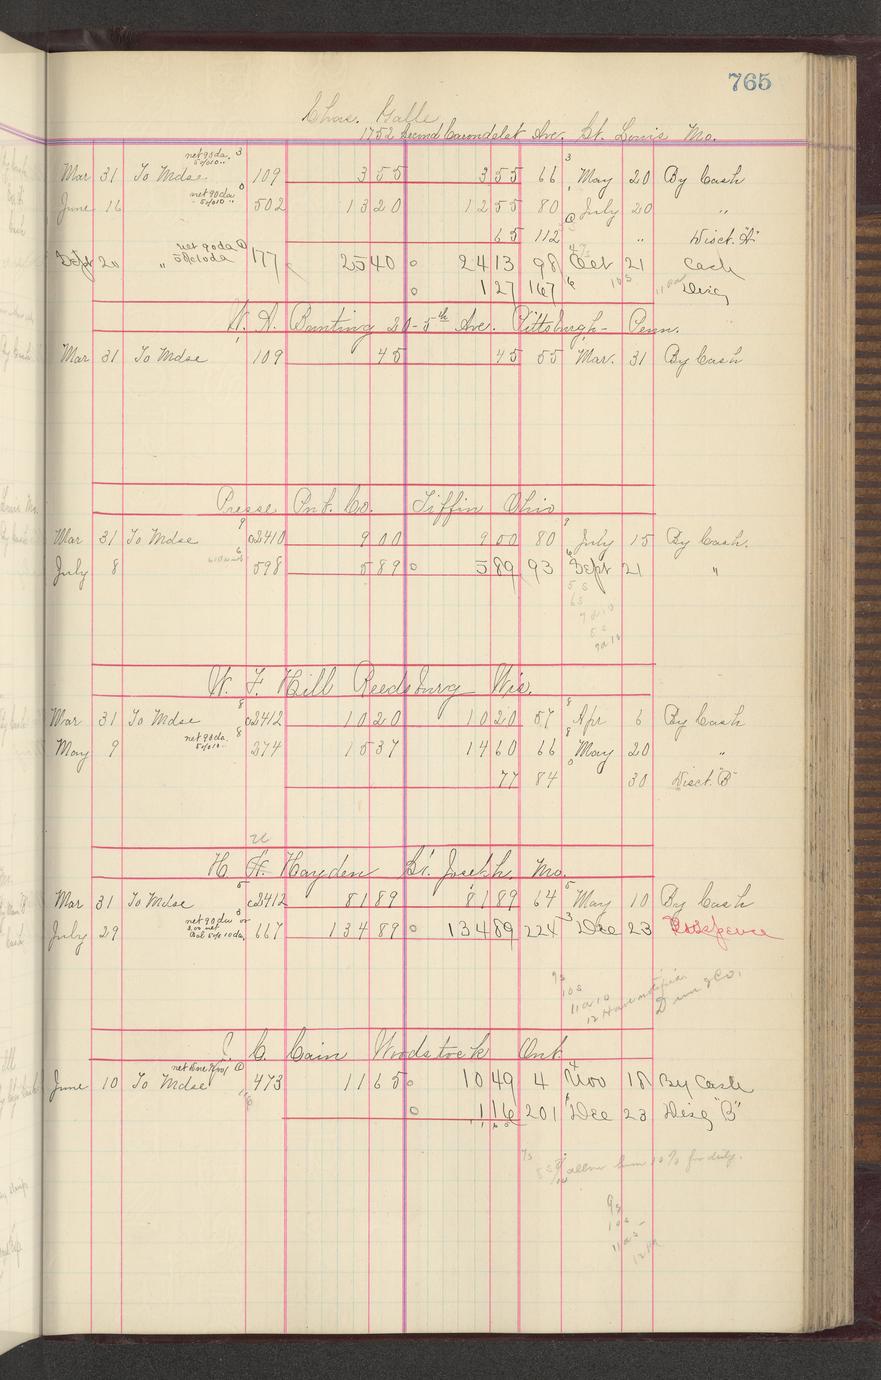 765
Chas. Galle
1752 Second Carondelet Ave. St. Louis Mo.
Mar 31 To Mdse net 90 da. 5%10 " 3 109 355 355 66 3 May 20 By Cash
June 16 net 90 da 5%10 " 0 502 1320 1255 80 July 20 "
65 112 " Disct. "A"
Sept 20 " net 90 da 5%10 da 177 2540 0 2413 98 Oct 21 Cash
0 127 167 6 10s Disc
W. A. Bunting 20-5th Ave. Pittsburgh - Penn.
Mar 31 To Mdse 109 45 45 55 Mar. 31 By Cash
Presse Pnt. Co. Tiffin Ohio
Mar 31 To Mdse 9 c2410 900 900 80 9 July 15 By Cash.
July 8 6 598 589 0 589 93 6 Sept 21 "
5 s
6s
7 a 10
8 s
9a 10
W. F. Hill Reedsburg Wis.
Mar 31 To Mdse 8 c2412 1020 1020 57 8 Apr 6 By Cash
May 9 net 90 da. 5%10 " 8 274 1537 1460 66 8 May 20 "
77 84 0 30 Disct. "B"
H. H. Hayden St. Joseph Mo.
Mar 31 To Mdse 5 c2412 8189 8189 64 5 May 10 By Cash
July 29 net 90 da or 3 667 13489 0 13489 224 3 Dec 23 Suspence
9s
10s
11 a 10
12 Have notified Dun & Co.
J. C. Cain Woodstock Ont.
June 10 To Mdse 473 1165 0 1049 4 Nov 18 By Cash
0 116 201 Dec 23 Disc "B"
7s
8s allow him 10% for duty.
9s
10s
11 a s